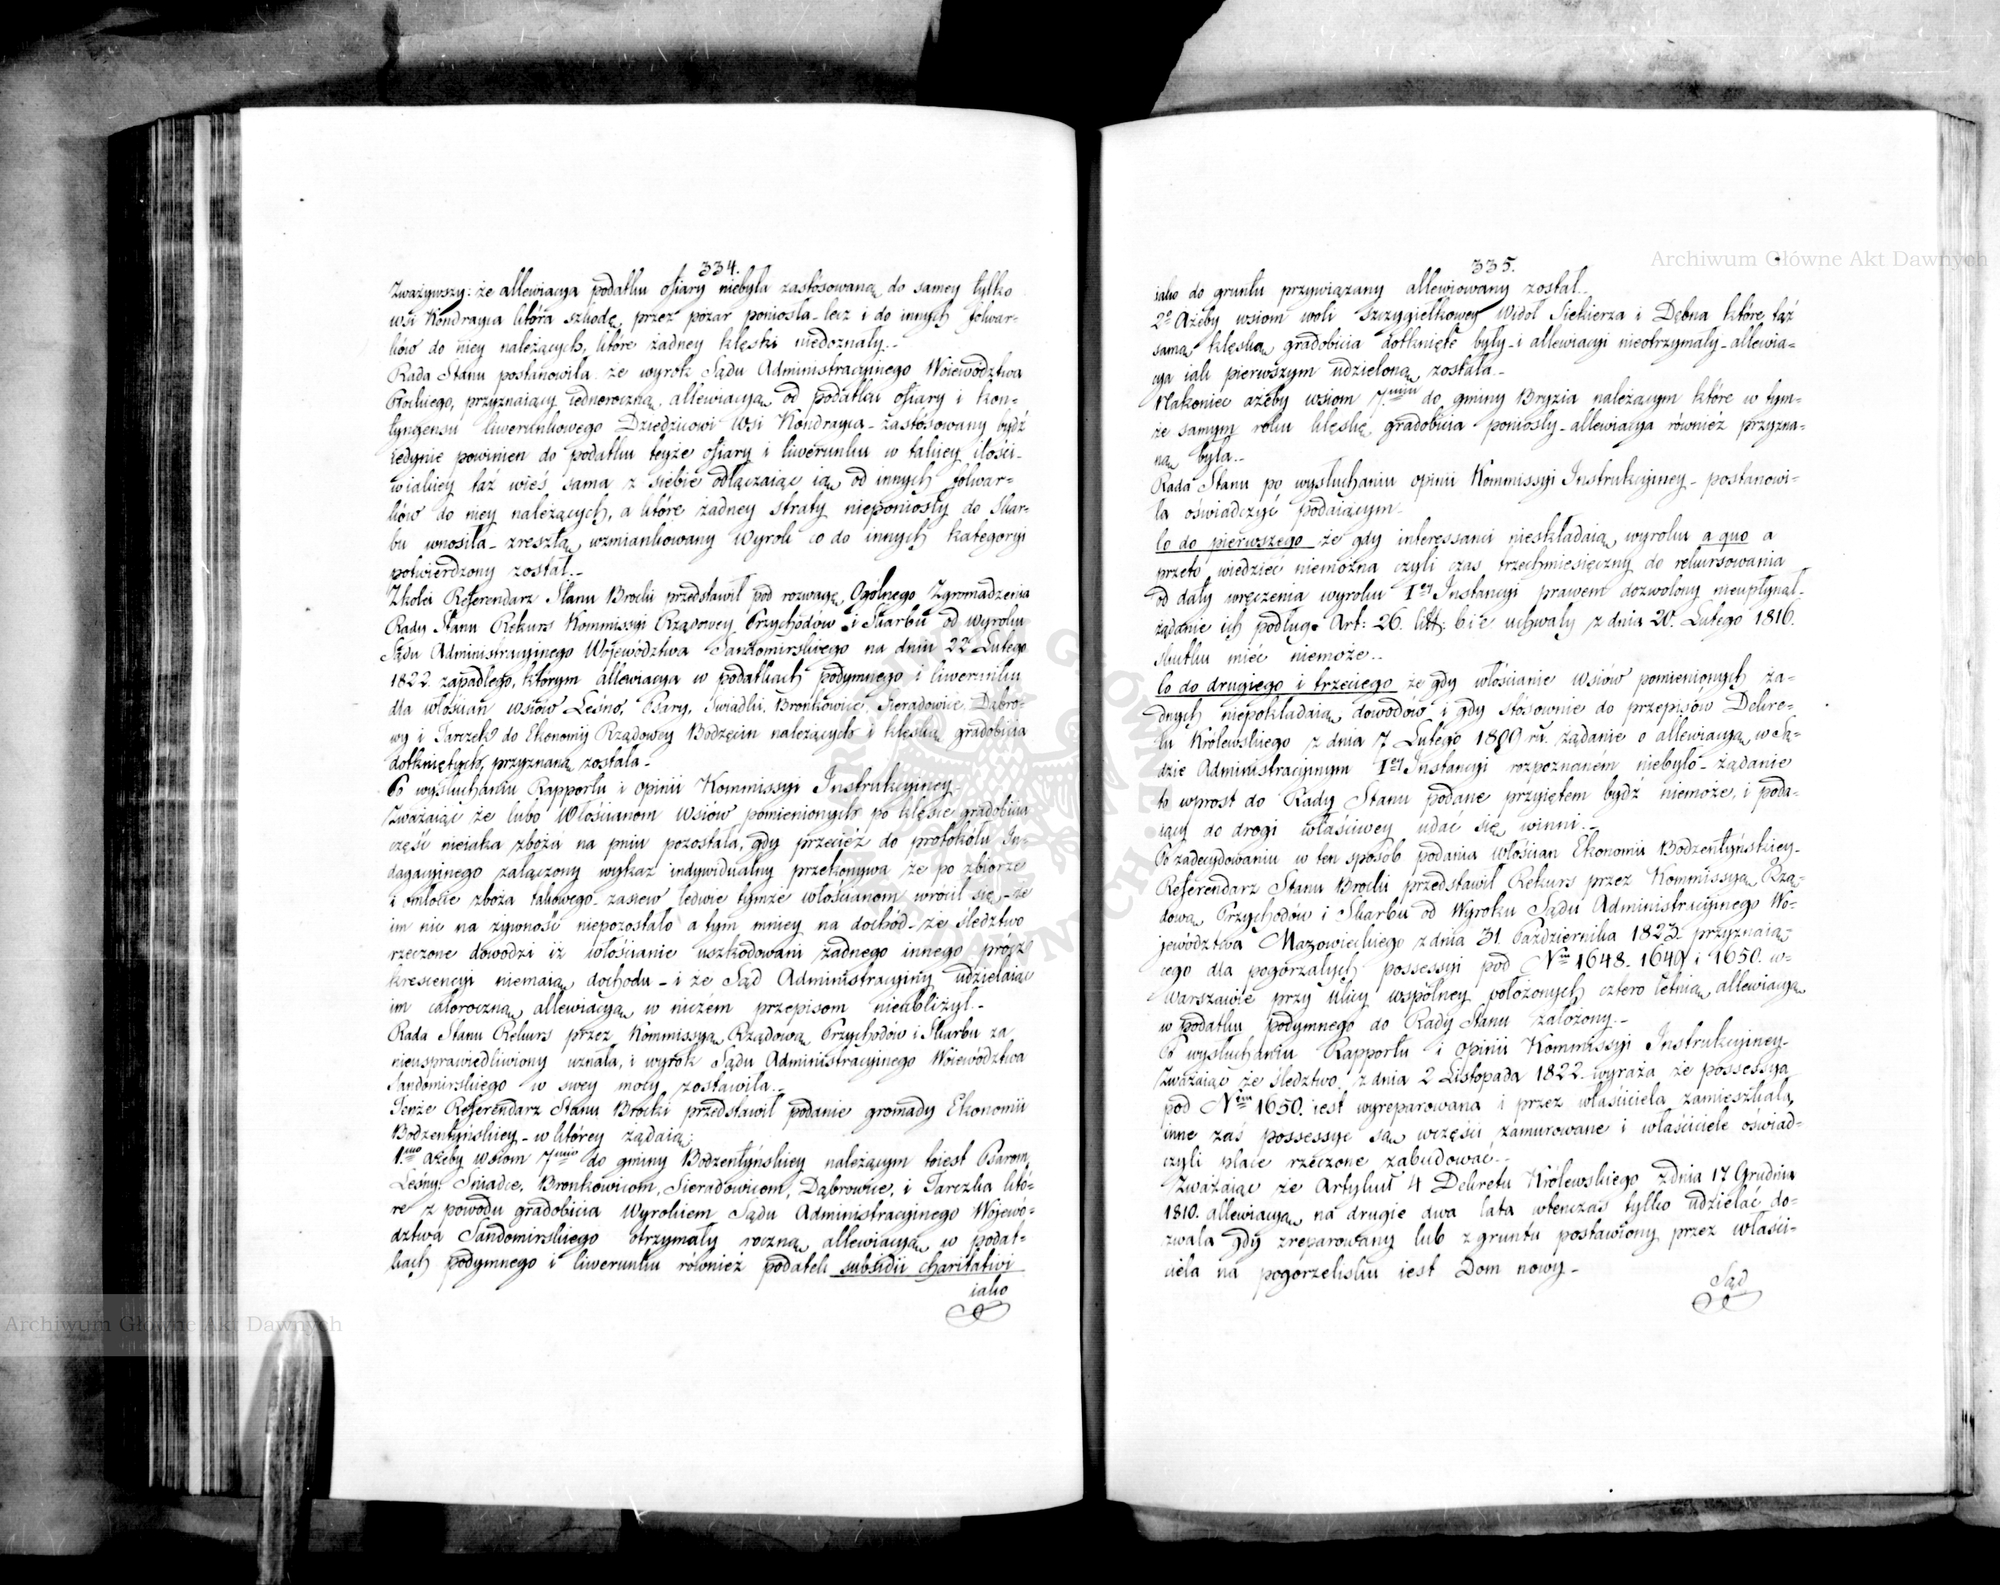 334.
Zważywszy: że allewiacya podatku ofiary niebyła zastosowaną do samey tylko
wsi Kondrayca która szkodę przez pożar poniosła - lecz i do innych folwar-
ków do niey należących, które żadney klęski niedoznały.-
Rada Stanu postanowiła że wyrok Sądu Administracyinego Woiewództwa
Płockiego, przyznaiący iednoroczną allewiacyą od podatku ofiary i kon-
tyngensu liwerunkowego Dziedzicowi Wsi Kondrayca - zastósowany bydź
iedynie powinien do podatku teyże ofiary i liwerunku w takiey ilości
w iakiey taż wieś sama z siebie odłączaiąc ią od innych folwar-
ków do niey należących, a które żadney straty nieponiosły do Skar-
bu wnosiła - zresztą wzmiankowany Wyrok co do innych kategoryi
potwierdzony został.-
Zkolei Referendarz Stanu Brocki przedstawił pod rozwagę Ogólnego Zgromadzenia
Rady Stanu Rekurs Kommissyi Rządowey Przychodów i Skarbu od wyroku
Sądu Administracyinego Województwa Sandomirskiego na dniu 22 Lutego
1822. zapadłego, którym allewiacya w podatkach podymnego i liwerunku
dla włościan wsiów Leśno, Psary, Swiadki, Bronkowice, Sieradowice, Dąbro-
wy i Tarczek do Ekonomii Rządowey Bodzęcin należących i klęską gradobicia
dotkniętych, przyznaną została -
Po wysłuchaniu Rapportu i opinii Kommissyi Instrukcyiney
Zważaiąc że lubo Włościanom Wsiów pomienionych po klęsce gradobicia
część nieiaka zboża na pniu pozostała, gdy przecież do protokółu In-
dagacyinego załączony wykaz indywidualny przekonywa że po zbiorze
i omłocie zboża takowego - zasiew ledwie tymże włościanom wrócił się - że
im nic na żywność niepozostało a tym mniey na dochód - że śledztwo
rzeczone dowodzi iż włościanie uszkodowani żadnego innego prócz
krescencyi niemaią dochodu - i że Sąd Administracyiny udzielaiąc
im całoroczną allewiacyą w niczém przepisom nieubliżył.-
Rada Stanu Rekurs przez Kommissyą Rządową Przychodów i Skarbu za
nieusprawiedliwiony uznała, i wyrok Sądu Administracyinego Woiewództwa
Sandomirskiego w swey mocy zostawiła.-
Tenże Referendarz Stanu Brocki przedstawił podanie gromady Ekonomii
Bodzentyńskiey - w którey żądaią:
1.mo ażeby wsiom 7miu do gminy Bodzentyńskiey należącym toiest Psarom,
Leśny, Sniadce, Bronkowicom, Sieradowicom, Dąbrowie, i Tarczka któ-
re z powodu gradobicia Wyrokiem Sądu Administracyinego Wojewó-
dztwa Sandomirskiego otrzymały roczną allewiacyą w podat-
kach podymnego i liwerunku również podatek subsidii charitativi
iako
335.
iako do gruntu przywiązany allewiowany został.-
2o Ażeby wsiom woli Szczygiełkowey Widoł Siekierza i Dębna które tąż
samą klęską gradobicia dotknięte były - i allewiacyi nieotrzymały - allewia-
cya iak pierwszym udzieloną została.-
Nakoniec ażeby wsiom 7.miu do gminy Bryzia należącym które w tym-
że samym roku klęskę gradobicia poniosły - allewiacya również przyzna-
ną była.-
Rada Stanu po wysłuchaniu opinii Kommissyi Instrukcyiney - postanowi-
ła oświadczyć podaiącym
Co do pierwszego że gdy interessanci nieskładaią wyroku a quo a
przeto wiedzieć niemożna czyli czas trzechmiesięczny do rekursowania
od daty wręczenia wyroku Iey Instancyi prawem dozwolony nieupłynął -
żądanie ich podług Art: 26. litt: b i c uchwały z dnia 20. Lutego 1816.
skutku mieć niemoże.-
Co do drugiego i trzeciego że gdy włościanie wsiów pomienionych ża-
dnych niepokładaią dowodów i gdy stósownie do przepisów Dekre-
tu Królewskiego z dnia 7 Lutego 1809 ru. żądanie o allewiacyą w Są-
dzie Administracyinym Iey Instancyi rozpoznaném niebyło - żądanie
to wprost do Rady Stanu podane przyiętem bydź niemoże, i poda-
iący do drogi właściwey udać się winni.-
Po zadecydowaniu w ten sposób podania włościan Ekonomii Bodzentyńskiey -
Referendarz Stanu Brocki przedstawił Rekurs przez Kommissyą Rzą-
dową Przychodów i Skarbu od Wyroku Sądu Administracyinego Wo-
jewództwa Mazowieckiego z dnia 31. Października 1823. przyznaią-
cego dla pogorzałych possessyi pod Nm 1648. 1649 i 1650. w-
Warszawie przy Ulicy wspólney położonych cztero letnią allewiacyą
w podatku podymnego do Rady Stanu założony.-
Po wysłuchaniu Rapportu i Opinii Kommissyi Instrukcyiney -
Zważaiąc że śledztwo z dnia 2 Listopada 1822. wyraża że possessya
pod Nem 1650. iest wyreparowana i przez właściciela zamieszkała,
inne zaś possessye są wczęści zamurowane i właściciele oświad-
czyli place rzeczone zabudować.-
Zważaiąc że Artykuł 4 Dekretu Królewskiego z dnia 17 Grudnia
1810. allewiacyą na drugie dwa lata wtenczas tylko udzielać do-
zwala gdy zreparowany lub z gruntu postawiony przez właści-
ciela na pogorzelisku iest Dom nowy -
Sąd